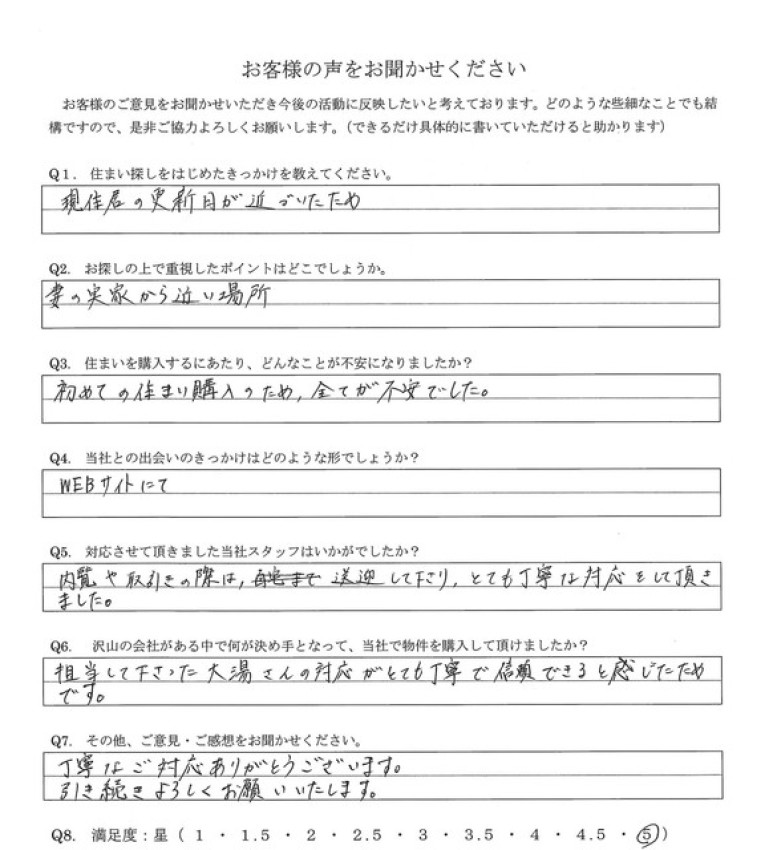 お客様の声をお聞かせください
お客様のご意見をお聞かせいただき今後の活動に反映したいと考えております。どのような些細なことでも結
構ですので、是非ご協力よろしくお願いします。（できるだけ具体的に書いていただけると助かります）
Q1. 住まい探しをはじめたきっかけを教えてください。
現住居の更新日が近づいたため
Q2. お探しの上で重視したポイントはどこでしょうか。
妻の実家から近い場所
Q3. 住まいを購入するにあたり、どんなことが不安になりましたか？
初めての住まい購入のため,全てが不安でした。
Q4. 当社との出会いのきっかけはどのような形でしょうか？
WEBサイトにて
Q5. 対応させて頂きました当社スタッフはいかがでしたか？
内覧や取引きの際は,自宅まで 送迎して下さり,とても丁寧な対応をして頂き
ました。
Q6. 沢山の会社がある中で何が決め手となって、当社で物件を購入して頂けましたか？
担当して下さった大湯さんの対応がとても丁寧で信頼できると感じたため
です。
Q7. その他、ご意見・ご感想をお聞かせください。
丁寧なご対応ありがとうございます。
引き続きよろしくお願いいたします。
Q8. 満足度：星（ 1 ・ 1.5 ・ 2 ・ 2.5 ・ 3 ・ 3.5 ・ 4 ・ 4.5 ・ 5 ）